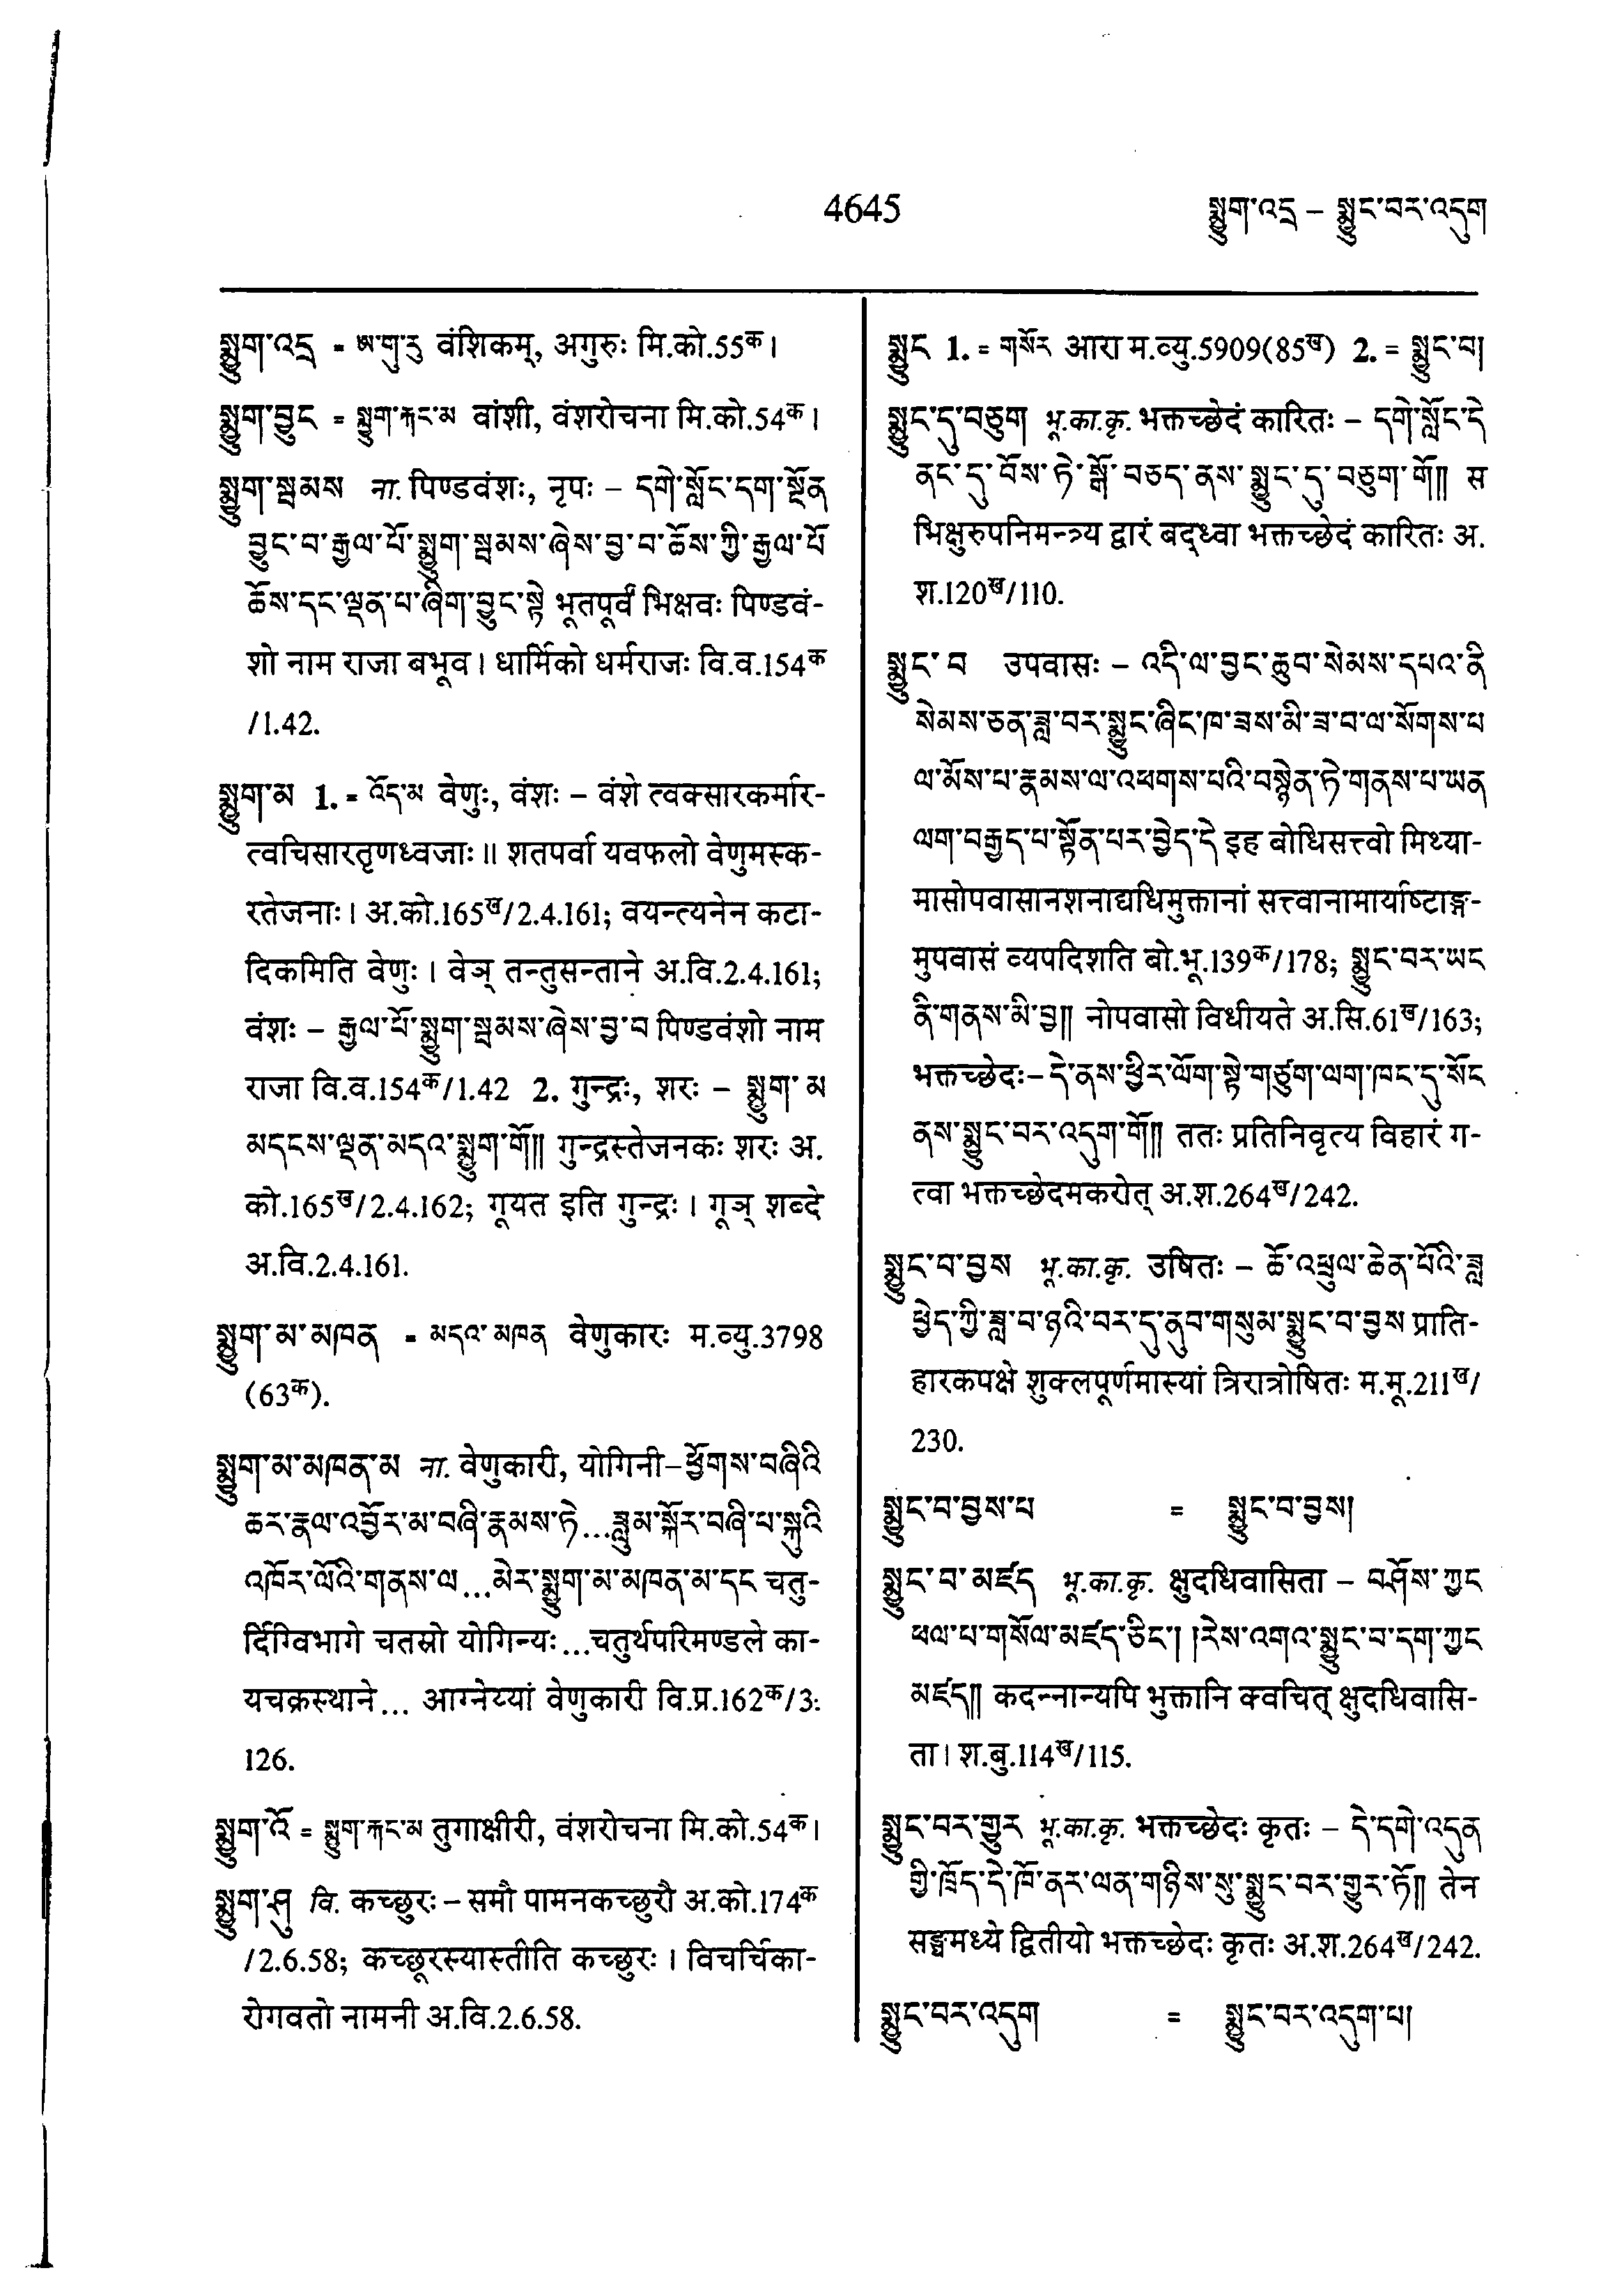 4645
སྨྱུག་འདྲ – སྨྱུང་བར་འདུག
སྨྱུག་འདྲ = ཨ་གུ་རུ वंशिकम्, अगुरुः मि.को.55क।
སྨྱུག་བྱུང = སྨྱུག་རྐང་མ वांशी, वंशरोचना मि.को.54क।
སྨྱུག་སྦམས ना. पिण्डवंशः, नृपः – དགེ་སློང་དག་སྔོན
བྱུང་བ་རྒྱལ་པོ་སྨྱུག་སྦམས་ཞེས་བྱ་བ་ཆོས་ཀྱི་རྒྱལ་པོ
ཆོས་དང་ལྡན་པ་ཞིག་བྱུང་སྟེ भूतपूर्वं भिक्षवः पिण्डवं-
शो नाम राजा बभूव। धार्मिको धर्मराजः वि.व.154क
/1.42.
སྨྱུག་མ 1. = འོད་མ वेणुः, वंशः – वंशे त्वक्सारकर्मार-
त्वचिसारतृणध्वजाः॥ शतपर्वा यवफलो वेणुमस्क-
रतेजनाः। अ.को.165ख/2.4.161; वयन्त्यनेन कटा-
दिकमिति वेणुः। वेञ् तन्तुसन्ताने अ.वि.2.4.161;
वंशः – རྒྱལ་པོ་སྨྱུག་སྦམས་ཞེས་བྱ་བ पिण्डवंशो नाम
राजा वि.व.154क/1.42 2. गुन्द्रः, शरः – སྨྱུག་མ
མདངས་ལྡན་མདའ་སྨྱུག་གོ།། गुन्द्रस्तेजनकः शरः अ.
को.165ख/2.4.162; गूयत इति गुन्द्रः। गूञ् शब्दे
अ.वि.2.4.161.
སྨྱུག་མ་མཁན = མདའ་མཁན वेणुकारः म.व्यु.3798
(63क).
སྨྱུག་མ་མཁན་མ ना. वेणुकारी, योगिनी–ཕྱོགས་བཞིའི
ཆར་རྣལ་འབྱོར་མ་བཞི་རྣམས་ཏེ...ཟླུམ་སྐོར་བཞི་པ་སྐུའི
འཁོར་ལོའི་གནས་ལ...མེར་སྨྱུག་མ་མཁན་མ་དང चतु-
र्दिग्विभागे चतस्रो योगिन्यः...चतुर्थपरिमण्डले का-
यचक्रस्थाने... आग्नेय्यां वेणुकारी वि.प्र.162क/3:
126.
སྨྱུག་འོ = སྨྱུག་རྐང་མ तुगाक्षीरी, वंशरोचना मि.को.54क।
སྨྱུག་ཤུ वि. कच्छुरः – समौ पामनकच्छुरौ अ.को.174क
/2.6.58; कच्छूरस्यास्तीति कच्छुरः। विचर्चिका-
रोगवतो नामनी अ.वि.2.6.58.
སྨྱུང 1. = གསོར आरा म.व्यु.5909(85ख) 2. = སྨྱུང་བ།
སྨྱུང་དུ་བཅུག भू.का.कृ. भक्तच्छेदं कारितः – དགེ་སློང་དེ
ནང་དུ་བོས་ཏེ་སྒོ་བཅད་ནས་སྨྱུང་དུ་བཅུག་གོ།། स
भिक्षुरुपनिमन्त्र्य द्वारं बद्ध्वा भक्तच्छेदं कारितः अ.
श.120ख/110.
སྨྱུང་བ उपवासः – འདི་ལ་བྱང་ཆུབ་སེམས་དཔའ་ནི
སེམས་ཅན་ཟླ་བར་སྨྱུང་ཞིང་ཁ་ཟས་མི་ཟ་བ་ལ་སོགས་པ
ལ་མོས་པ་རྣམས་ལ་འཕགས་པའི་བསྙེན་ཏེ་གནས་པ་ཡན
ལག་བརྒྱད་པ་སྟོན་པར་བྱེད་དེ इह बोधिसत्त्वो मिथ्या-
मासोपवासानशनाद्यधिमुक्तानां सत्त्वानामार्याष्टाङ्ग-
मुपवासं व्यपदिशति बो.भू.139क/178; སྨྱུང་བར་ཡང
ནི་གནས་མི་བྱ།། नोपवासो विधीयते अ.सि.61ख/163;
भक्तच्छेदः– དེ་ནས་ཕྱིར་ལོག་སྟེ་གཙུག་ལག་ཁང་དུ་སོང
ནས་སྨྱུང་བར་འདུག་གོ།། ततः प्रतिनिवृत्य विहारं ग-
त्वा भक्तच्छेदमकरोत् अ.श.264ख/242.
སྨྱུང་བ་བྱས भू.का.कृ. उषितः – ཆོ་འཕྲུལ་ཆེན་པོའི་ཟླ
ཕྱེད་ཀྱི་ཟླ་བ་ཉའི་བར་དུ་ནུབ་གསུམ་སྨྱུང་བ་བྱས प्राति-
हारकपक्षे शुक्लपूर्णमास्यां त्रिरात्रोषितः म.मू.211ख/
230.
སྨྱུང་བ་བྱས་པ = སྨྱུང་བ་བྱས།
སྨྱུང་བ་མཛད भू.का.कृ. क्षुदधिवासिता – བཤོས་ཀྱང
ཕལ་པ་གསོལ་མཛད་ཅིང་། །རེས་འགའ་སྨྱུང་བ་དག་ཀྱང
མཛད།། कदन्नान्यपि भुक्तानि क्वचित् क्षुदधिवासि-
ता। श.बु.114ख/115.
སྨྱུང་བར་གྱུར भू.का.कृ. भक्तच्छेदः कृतः – དེ་དགེ་འདུན
གྱི་ཁྲོད་དེ་ཁོ་ནར་ལན་གཉིས་སུ་སྨྱུང་བར་གྱུར་ཏོ།། तेन
सङ्घमध्ये द्वितीयो भक्तच्छेदः कृतः अ.श.264ख/242.
སྨྱུང་བར་འདུག = སྨྱུང་བར་འདུག་པ།